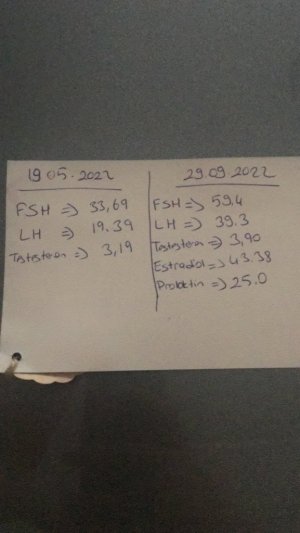 19 05.2022
FSH => 33,69
LH => 19.39
Testesteron => 3,19
29.09.2022
FSH => 59.4
LH => 39.3
Testesteron => 3,90
Estradiol => 43.38
Prolaktin => 25.0